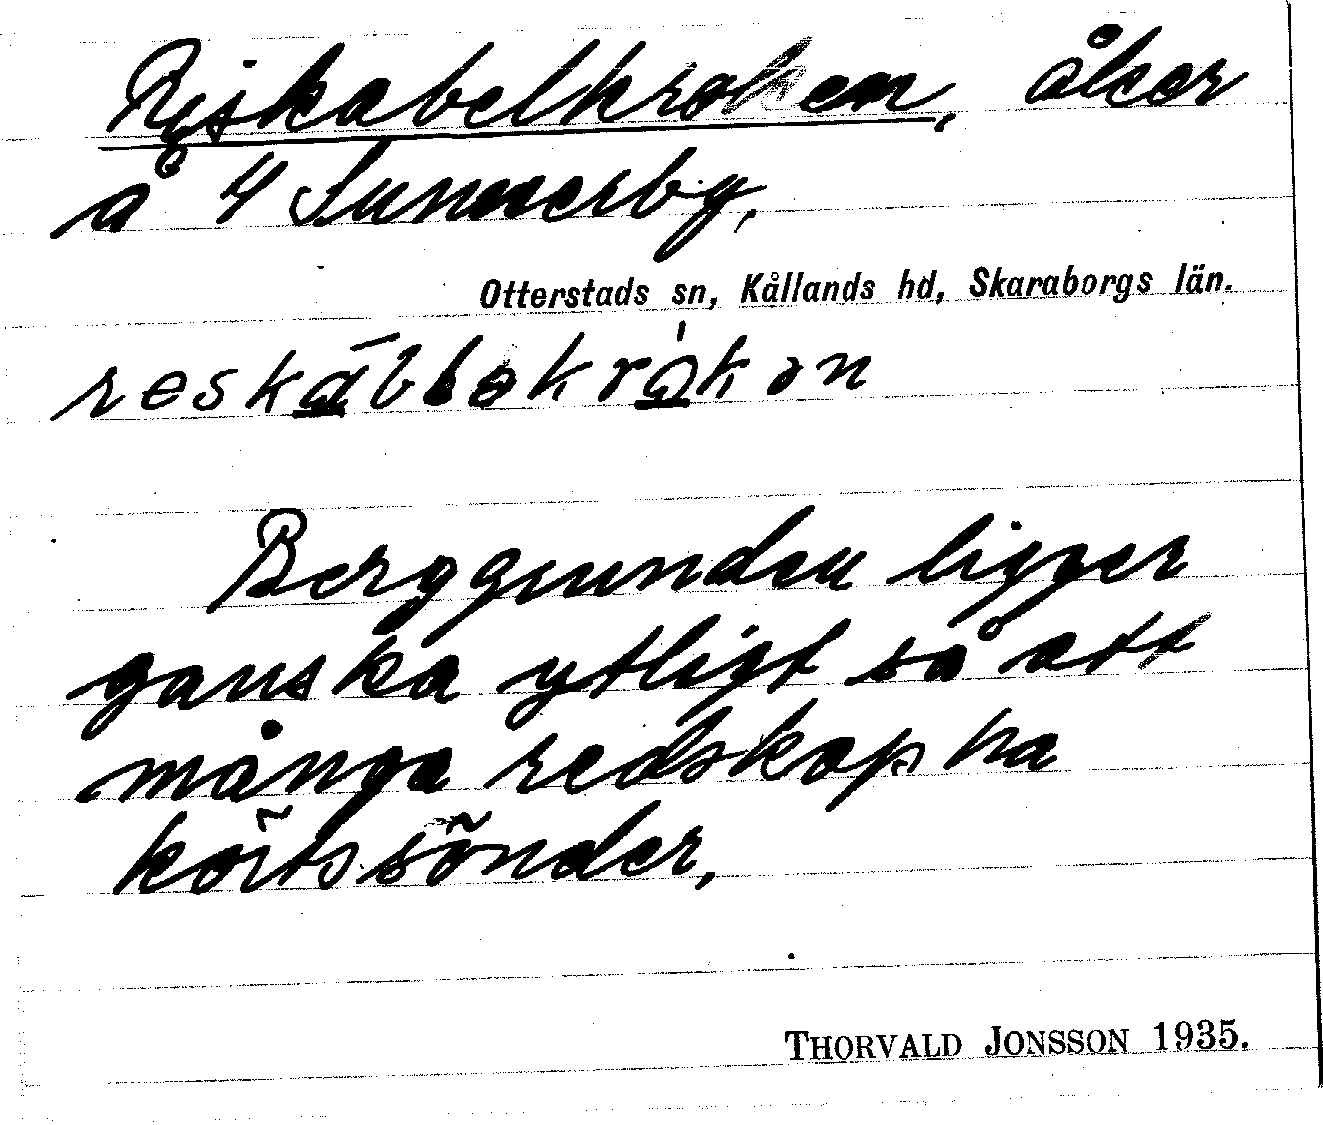 Riskabelkroken, åker
å 4 Sunnerby,
Otterstads sn, Kållands hd, Skaraborgs län.
Berggrunden ligger
ganska ytligt så att
många redskap ha
körts sönder,
THORVALD JONSSON 1935.